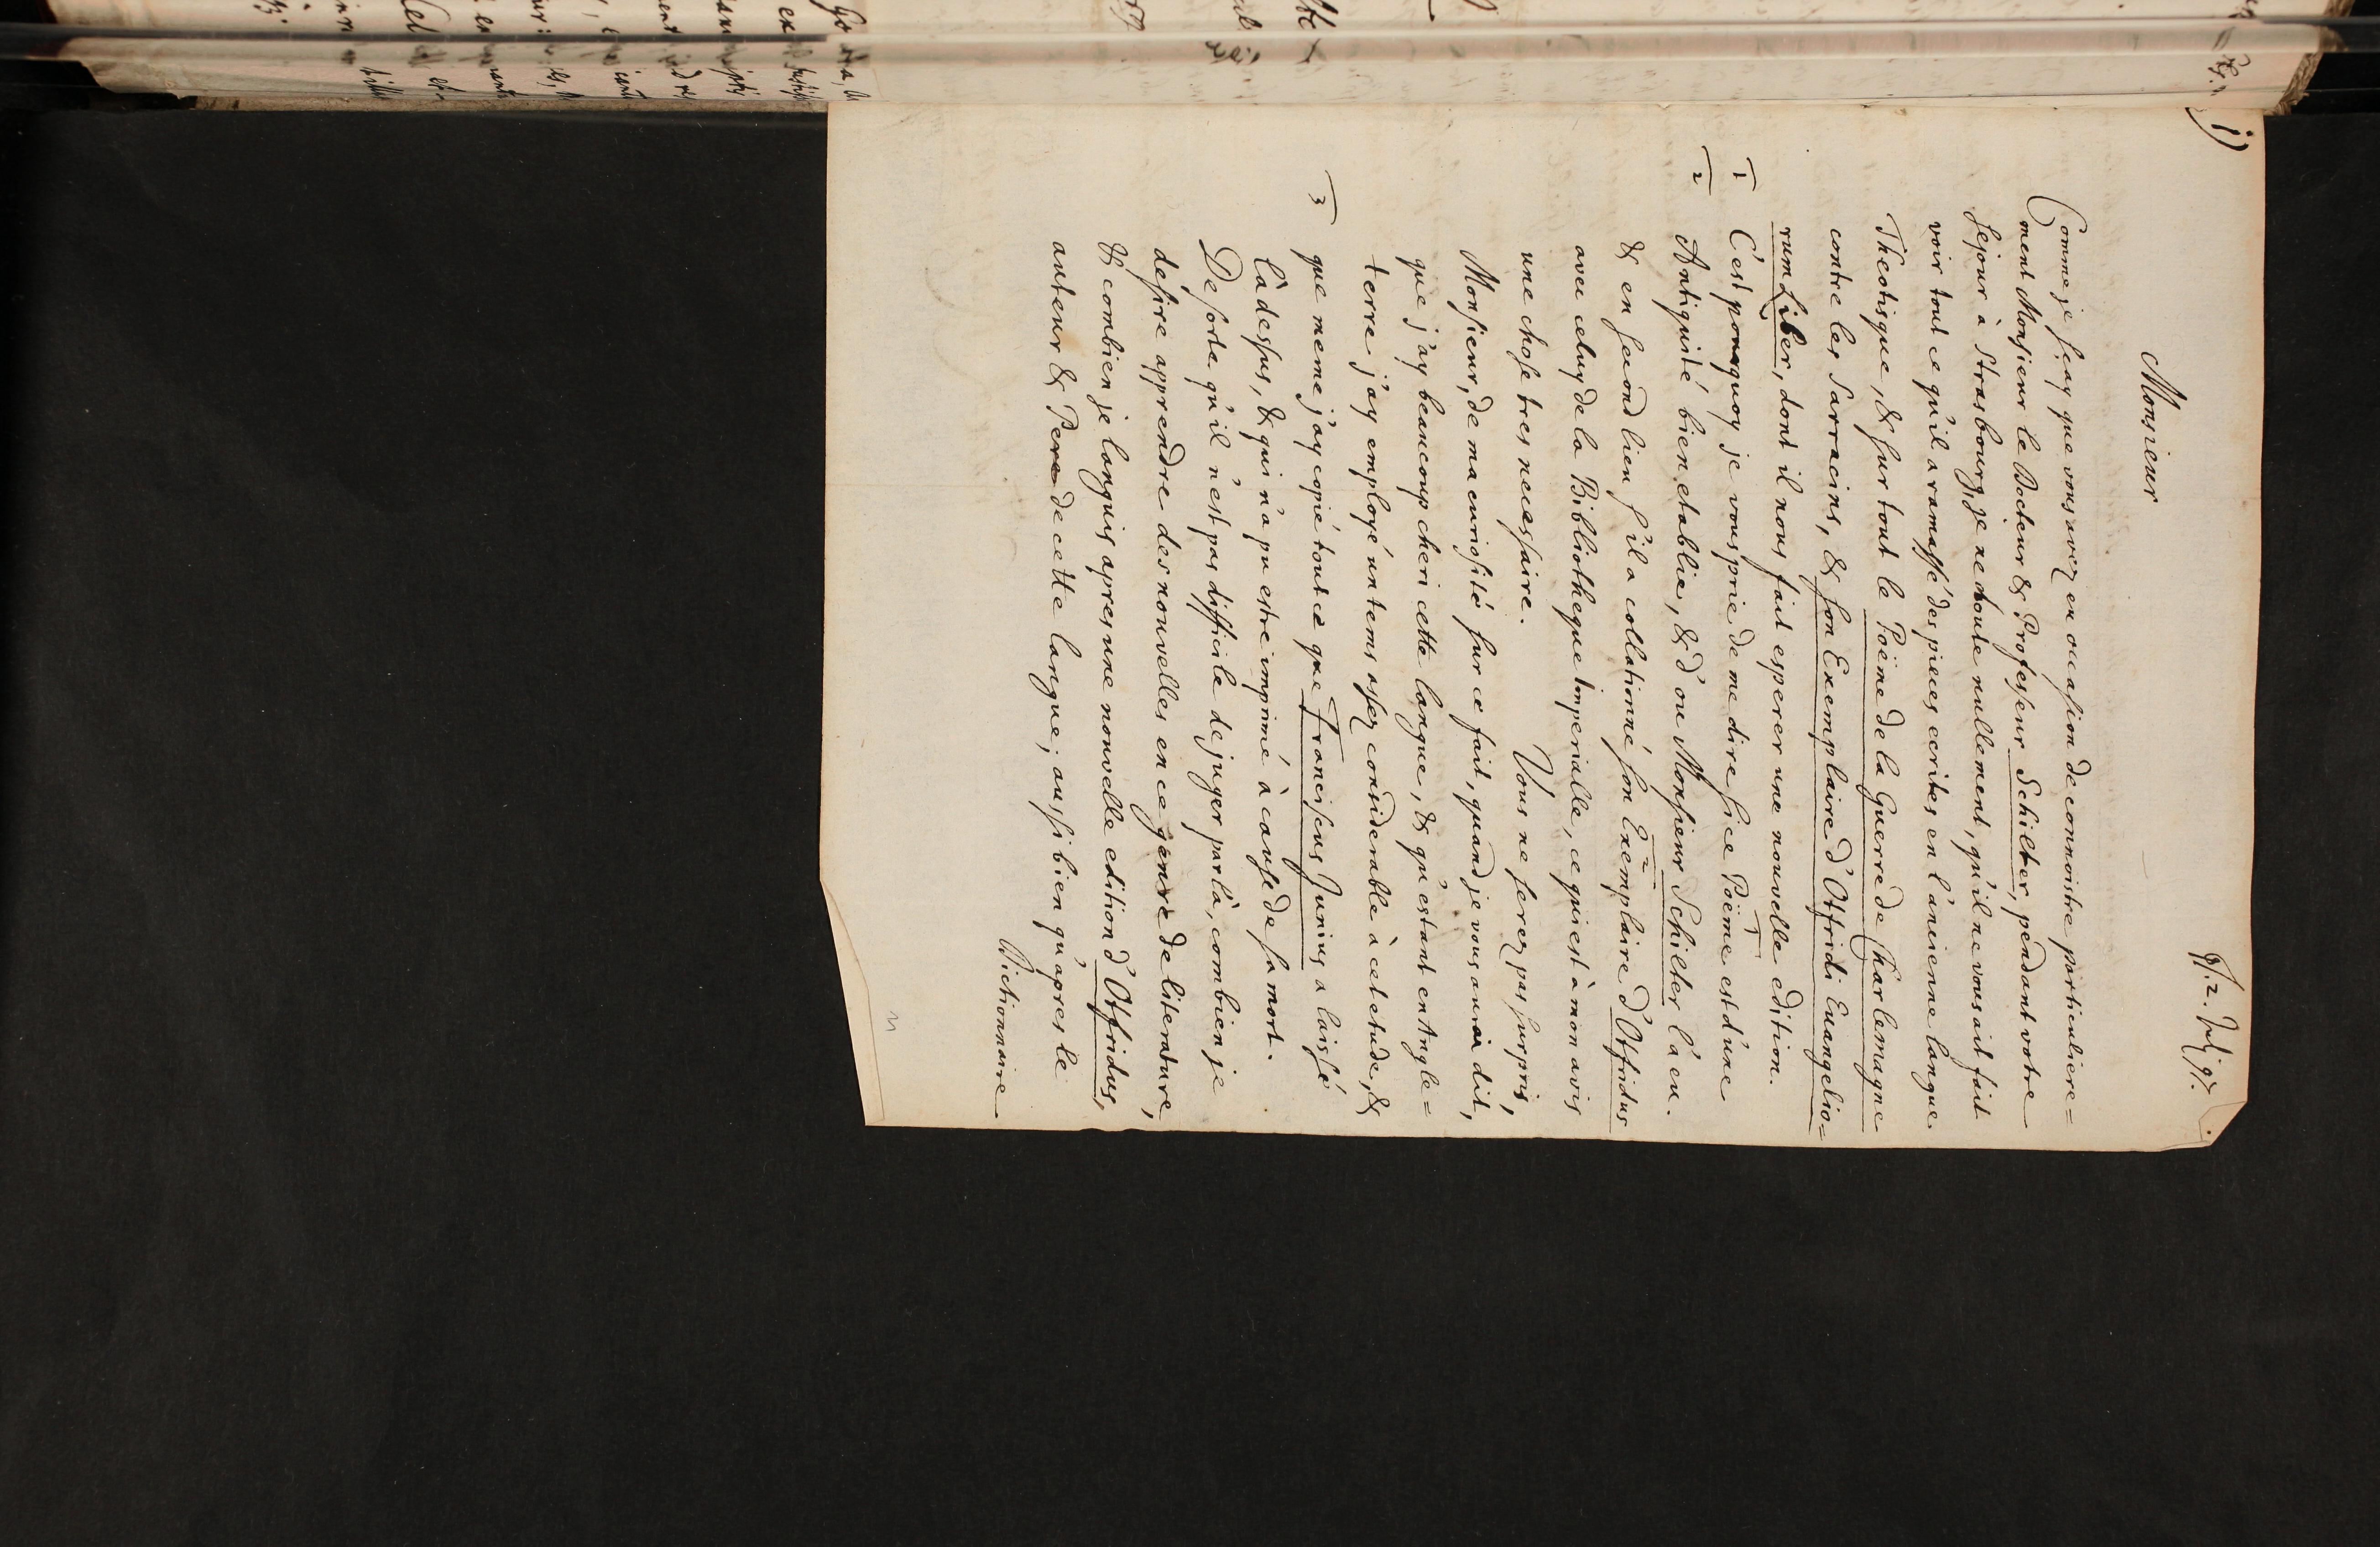 i)
12. Julj 97.
Monsieur
Comme je sçay que vous avez eu occasion de connoistre particuliere=
ment Monsieur le Docteur & Professeur Schilter, pendant votre
sejour à Strasbourg, je ne doute nullement, qu'il ne vous ait fait
voir tout ce qu'il a ramassé des pieces ecrites en l'ancienne langue
Theotisque, & sur tout le Poëme de la Guerre de Charlemagne
contre les Sarracins, & son Exemplaire d'Otfridi Euangelio=
rum Liber, dont il nous fait esperer une nouvelle edition.
1 C'est pourquoy je vous prie de me dire si ce Poëme est d'une
2 Antiquité bien etablie, & d'ou Monsieur Schilter l'a eu.
& en second lieu s'il a collationné son Exemplaire d'Otfridus
avec celuy de la Bibliotheque Imperialle, ce qui est à mon avis
une chose tres necessaire. Vous ne serez pas surpris,
Monsieur, de ma curiosité sur ce fait, quand je vous aurai dit,
que j'ay beaucoup cheri cette langue, & qu'estant en Angle=
terre j'ay employé un tems assez considerable à cet etude, &
3 que meme j'ay copié tout ce que Franciscus Junius a laissé
là dessus, & qui n'a pu estre imprimé à cause de sa mort.
De sorte qu'il n'est pas difficile de juger par là, combien je
desire apprendre des nouvelles en ce genre de literature,
& combien je languis apres une nouvelle edition d'Otfridus,
auteur & Pere de cette langue; aussi bien qu'apres le
Dictionnaire